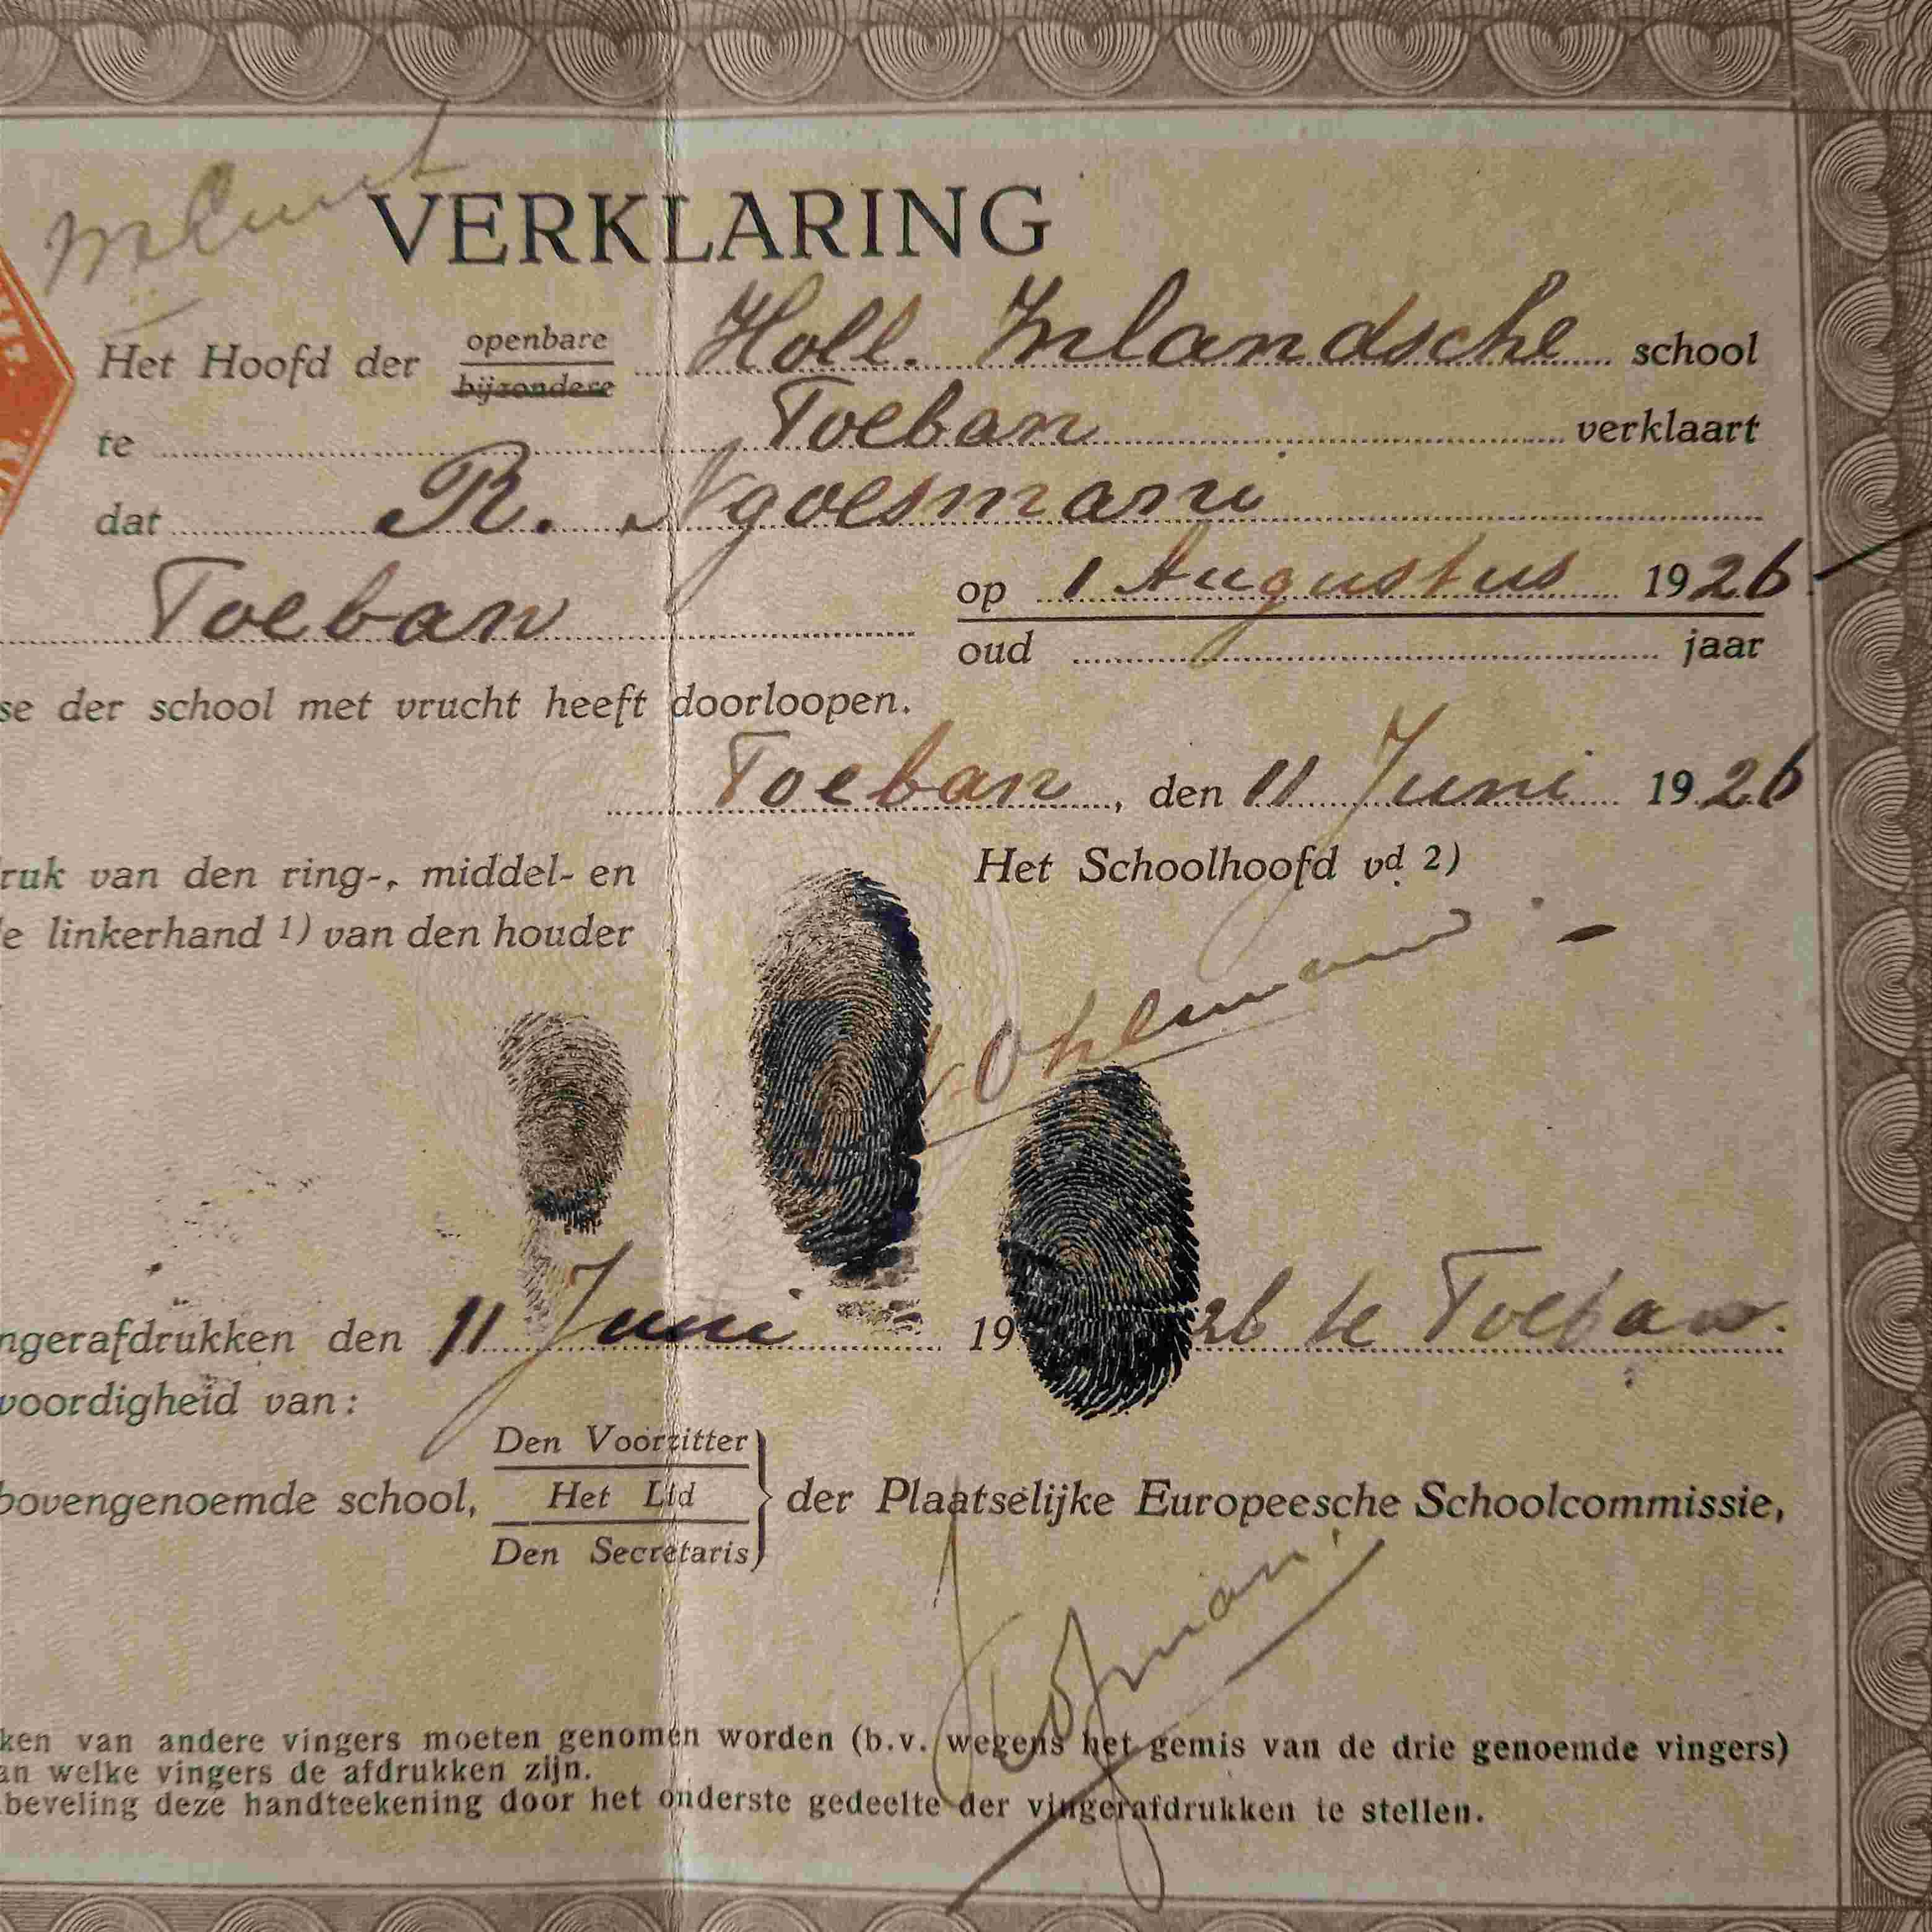 VERKLARING
Het Hoofd der openbare Holl. Inlandsche school
bijzondere
te Toeban verklaart
dat R. Ngoesmani
Toeban op 1 Augustus 1926
oud jaar
se der school met vrucht heeft doorloopen.
Toeban, den 11 Juni 1926
ruk van den ring-, middel- en
Het Schoolhoofd vd 2)
e linkerhand 1) van den houder
Ohlmann
ngerafdrukken den 11 Juni 1926 te Toeban.
voordigheid van:
Den Voorzitter
bovengenoemde school, Het Lid der Plaatselijke Europeesche Schoolcommissie,
Den Secretaris
ken van andere vingers moeten genomen worden (b.v. wegens het gemis van de drie genoemde vingers)
an welke vingers de afdrukken zijn.
beveling deze handteekening door het onderste gedeelte der vingerafdrukken te stellen.